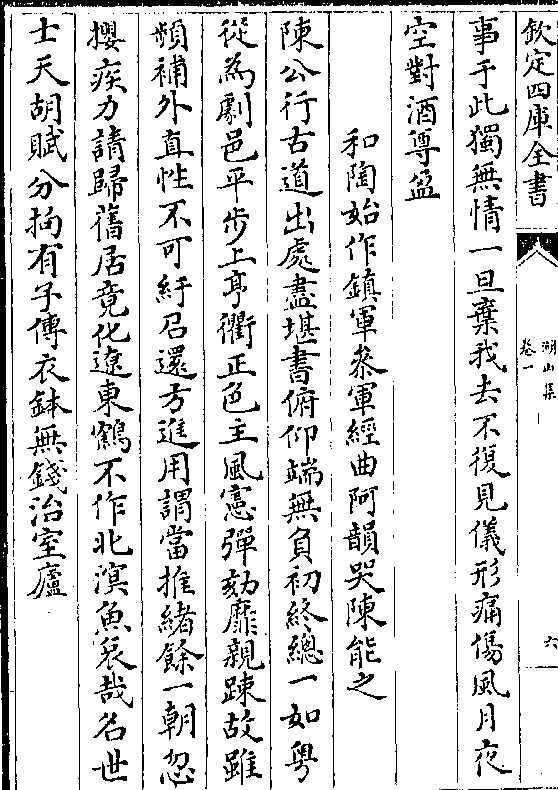 欽定四庫全書
湖山集
卷一
六
事于此獨無情一旦棄我去不復見儀形痛傷風月夜
空對酒尊盈
和陶始作鎮軍參軍經曲阿韻哭陳能之
陳公行古道出處盡堪書俯仰端無負初終總一如粤
從為劇邑平步上亨衢正色主風憲彈劾靡親踈故雖
頻補外直性不可紆召還方進用謂當推緒餘一朝忽
攖疾力請歸舊居竟化遼東鶴不作北溟魚哀哉名世
士天胡賦分拘有子傳衣鉢無錢治室廬